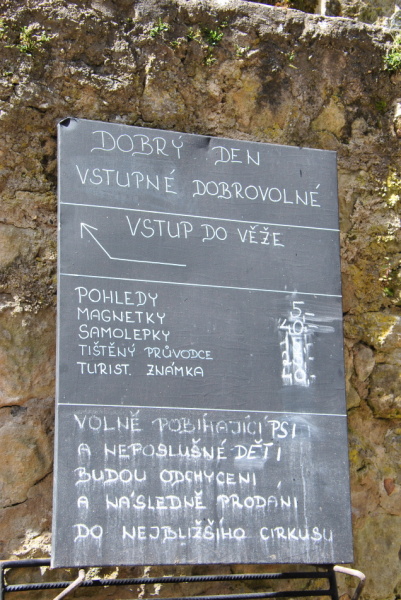 DOBRÝ DEN
VSTUPNÉ DOBROVOLNÉ
VSTUP DO VĚŽE
POHLEDY 5,-
MAGNETKY 40,-
SAMOLEPKY
TIŠTĚNÝ PRŮVODCE
TURIST. ZNÁMKA
VOLNĚ POBÍHAJÍCÍ PSI
A NEPOSLUŠNÉ DĚTI
BUDOU ODCHYCENI
A NÁSLEDNĚ PRODÁNI
DO NEJBLIŽŠÍHO CIRKUSU